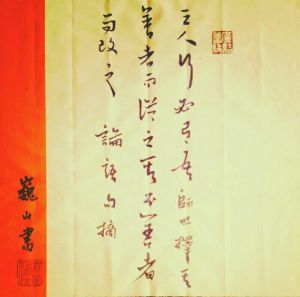 三人行必有吾師也擇其
善者而從之其不善者
而改之 論語句摘
巍山書